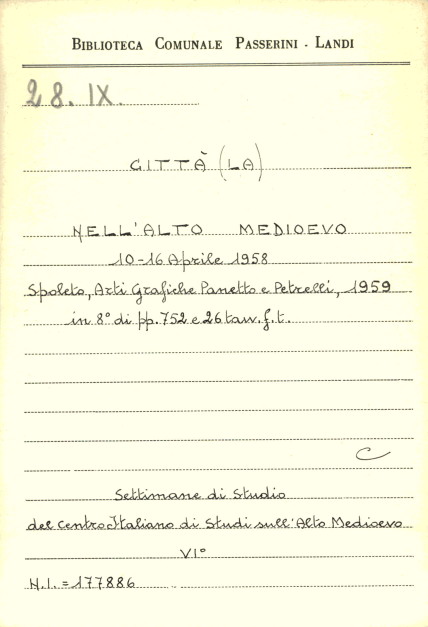 BIBLIOTECA COMUNALE PASSERINI - LANDI
28. IX.
CITTÀ (LA)
NELL'ALTO MEDIOEVO
10-16 Aprile 1958
Spoleto, Arti Grafiche Panetto e Petrelli, 1959
in 8° di pp. 752 e 26 tav. f. t.
C
Settimane di Studio
del Centro Italiano di Studi sull'Alto Medioevo
VI°
N.I. = 177886